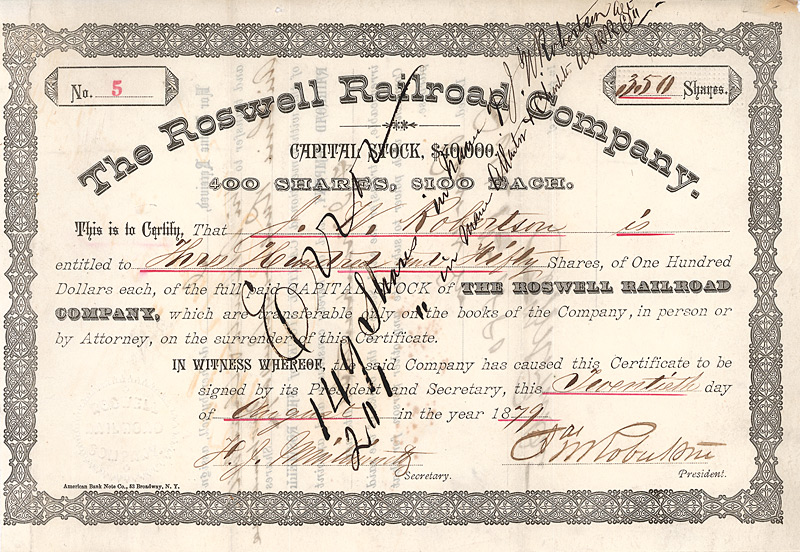 No. 5
350 Shares.
The Roswell Railroad Company.
CAPITAL STOCK, $40,000.
400 SHARES, $100 EACH.
This is to Certify, That J. W. Robertson is
entitled to Three Hundred and Fifty Shares, of One Hundred
Dollars each, of the full paid CAPITAL STOCK of THE ROSWELL RAILROAD
COMPANY, which are transferable only on the books of the Company, in person or
by Attorney, on the surrender of this Certificate.
IN WITNESS WHEREOF, the said Company has caused this Certificate to be
signed by its President and Secretary, this Twentieth day
of August in the year 1879.
Secretary.
President.
American Bank Note Co., 53 Broadway, N. Y.
149 Shares in name J. W. Robertson
201 " in name Atlanta & Charlotte